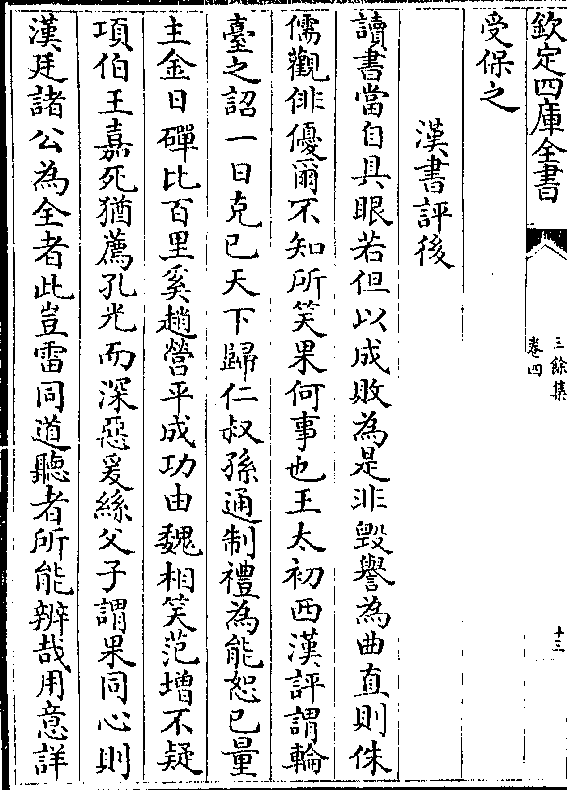 欽定四庫全書
三餘集
卷四
十三
受保之
漢書評後
讀書當自具眼若但以成敗為是非毀譽為曲直則侏
儒觀俳優爾不知所笑果何事也王太初西漢評謂輪
臺之詔一日克已天下歸仁叔孫通制禮為能恕已量
主金日磾比百里奚趙營平成功由魏相笑范增不疑
項伯王嘉死猶薦孔光而深惡爰絲父子謂果同心則
漢廷諸公為全者此豈雷同道聽者所能辨哉用意詳